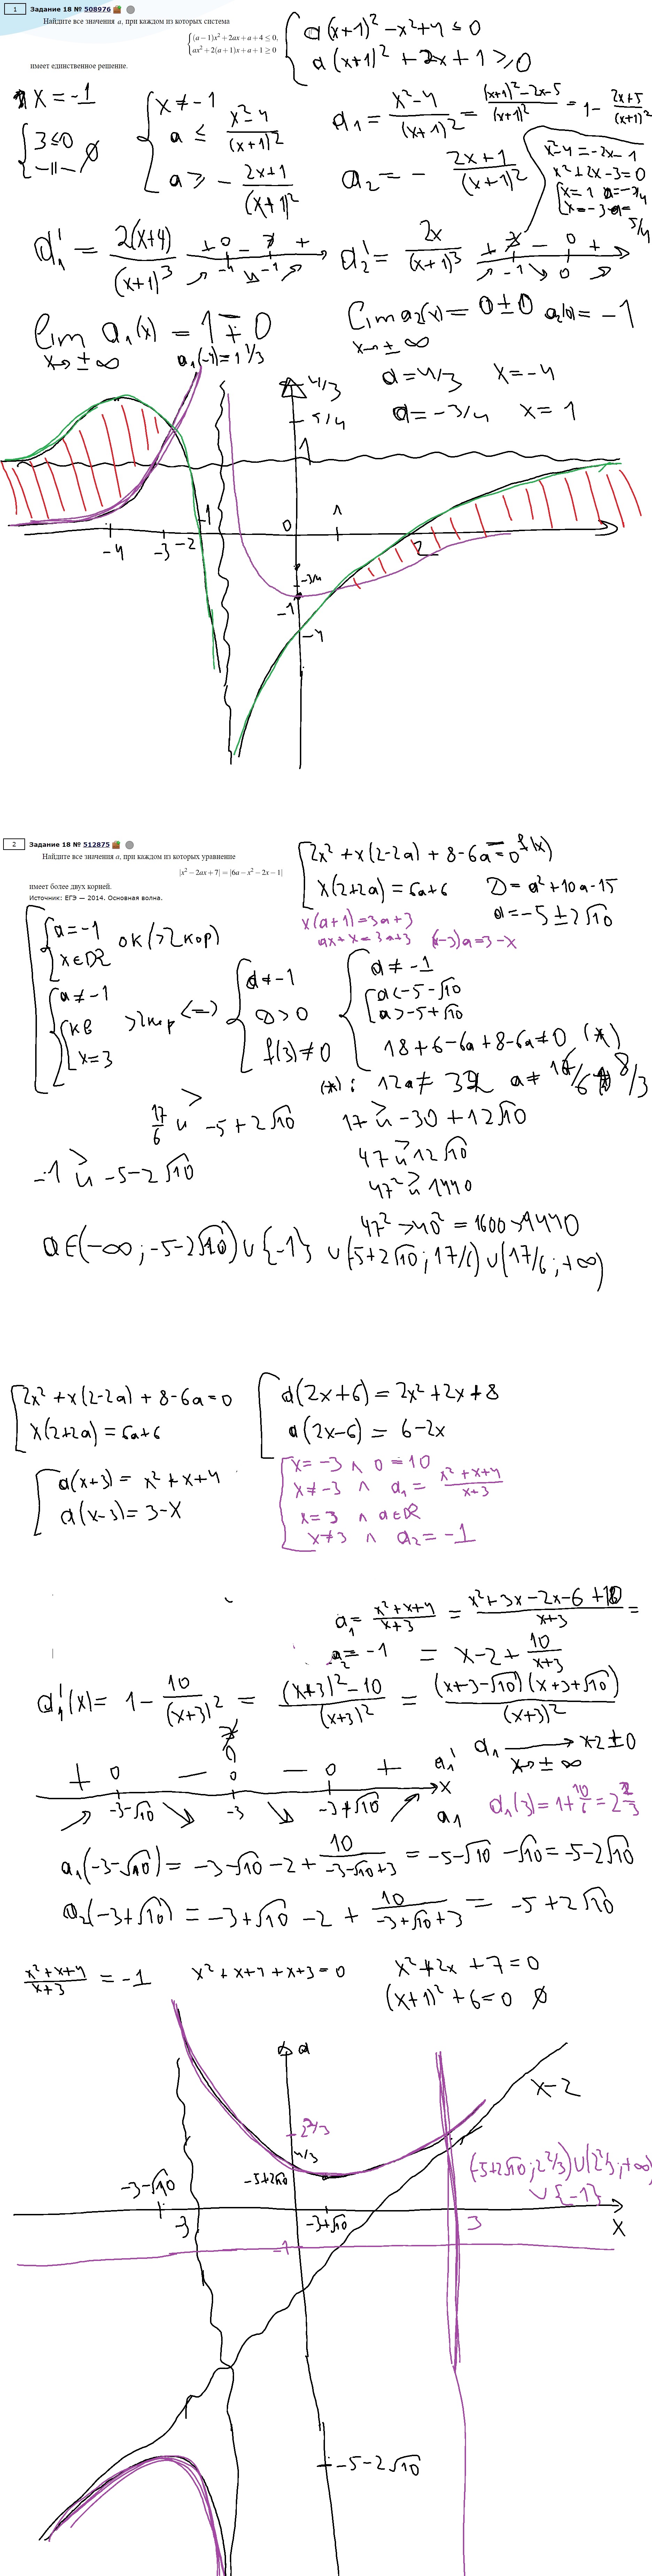 1 Задание 18 № 508976
Найдите все значения a, при каждом из которых система
{(a−1)x²+2ax+a+4 ≤ 0,
ax²+2(a+1)x+a+1 ≥ 0
имеет единственное решение.
{a(x+1)²−x²+4 ≤ 0
a(x+1)²+2x+1 ≥ 0
x = −1
{3 ≤ 0
−11− ∅
{x ≠ −1
a ≤ (x²−4)/(x+1)²
a ≥ −(2x+1)/(x+1)²
a₁ = (x²−4)/(x+1)² = ((x+1)²−2x−5)/(x+1)² = 1− (2x+5)/(x+1)²
a₂ = − (2x+1)/(x+1)²
x²−4 = −2x−1
x²+2x−3=0
[x=1 a=−3/4
x=−3 a=
5/4
a₁' = 2(x+4)/(x+1)³ + 0 − + −4 −1
a₂' = 2x/(x+1)³ + − 0 + −1 0
lim a₁(x) = 1∓0
x→±∞ a₁(−4)=1 1/3
lim a₂(x) = 0±0 a₂(0) = −1
x→±∞
a=4/3 x=−4
a=−3/4 x=1
4/3
5/4
1
−4 −3 −2 −1 0 1 2
−3/4
−1
−4
2 Задание 18 № 512875
Найдите все значения a, при каждом из которых уравнение
|x²−2ax+7| = |6a−x²−2x−1|
имеет более двух корней.
Источник: ЕГЭ — 2014. Основная волна.
[2x²+x(2−2a)+8−6a=0 f(x)
x(2+2a) = 6a+6 D = a²+10a−15
a=−5±2√10
x(a+1)=3a+3
ax+x=3a+3 (x−3)a=3−x
[{a=−1
x∈R ок(>2кор)
{a≠−1
[кв
x=3 >2кор <=> {a≠−1
D>0
f(3)≠0
{a≠−1
[a<−5−√10
a>−5+√10
18+6−6a+8−6a≠0 (*)
(*): 12a≠32 a≠ 8/3
17/6 и −5+2√10 17 и −30+12√10
−1 и −5−2√10 47 и 12√10
47² и 1440
47²>40²=1600>1440
a∈(−∞;−5−2√10)∪{−1}∪(−5+2√10;17/6)∪(17/6;+∞)
[2x²+x(2−2a)+8−6a=0
x(2+2a) = 6a+6
[a(2x+6) = 2x²+2x+8
a(2x−6) = 6−2x
[a(x+3) = x²+x+4
a(x−3)=3−x
[x=−3 ∧ 0=10
x≠−3 ∧ a₁= (x²+x+4)/(x+3)
x=3 ∧ a∈R
x≠3 ∧ a₂=−1
a₁= (x²+x+4)/(x+3) = (x²+3x−2x−6+10)/(x+3) =
a₂=−1 = x−2+ 10/(x+3)
a₁'(x)= 1− 10/(x+3)² = ((x+3)²−10)/(x+3)² = (x+3−√10)(x+3+√10)/(x+3)²
+ 0 − 0 − 0 + a₁'
x
−3−√10 −3 −3+√10 a₁
a₁ → x−2±0
x→±∞
a₁(3)=1+10/6=2 2/3
a₁(−3−√10)= −3−√10−2+ 10/(−3−√10+3) = −5−√10−√10=−5−2√10
a₂(−3+√10) = −3+√10−2+ 10/(−3+√10+3) = −5+2√10
(x²+x+4)/(x+3) = −1 x²+x+7+x+3=0 x²+2x+7=0
(x+1)²+6=0 ∅
a
x−2
2 2/3
4/3
−5+2√10
(−5+2√10;2 2/3)∪(2 2/3;+∞)
∪{−1}
−3−√10 −3 −3+√10 3 x
−1
−5−2√10